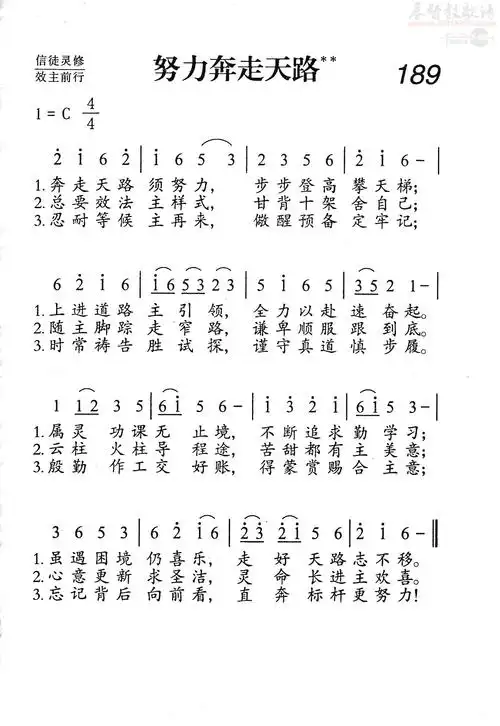 基督教歌谱
信徒灵修
效主前行
努力奔走天路**
189
1 = C 4/4
2̇ 1̇ 6 2̇ | 1̇ 6 5 3 | 2 3 5 6 | 2̇ 1̇ 6 – |
1. 奔走天路 须努力， 步步登高 攀天梯；
2. 总要效法 主样式， 甘背十架 舍自己；
3. 忍耐等候 主再来， 儆醒预备 定牢记；
6 2̇ 1̇ 6 | 1̇6 53 2 3 | 5 1̇ 6 5 | 35 2 1 – |
1. 上进道路 主引领， 全力以赴 速奋起。
2. 随主脚踪 走窄路， 谦卑顺服 跟到底。
3. 时常祷告 胜试探， 谨守真道 慎步履。
1 12 3 5 | 61̇ 5 6 – | 1̇ 3̇ 2̇ 1̇ | 61̇ 5 3 – |
1. 属灵 功课无 止境， 不断追求 勤学习；
2. 云柱 火柱导 程途， 苦甜都有 主美意；
3. 殷勤 作工交 好账， 得蒙赏赐 合主意；
3 6 5 3 | 6 2̇ 1̇6 | 2̇3̇ 2̇1̇ 6 1̇ | 5 2̇ 1̇ – ‖
1. 虽遇困境 仍喜乐， 走 好 天路志不移。
2. 心意更新 求圣洁， 灵 命 长进主欢喜。
3. 忘记背后 向前看， 直 奔 标杆更努力！